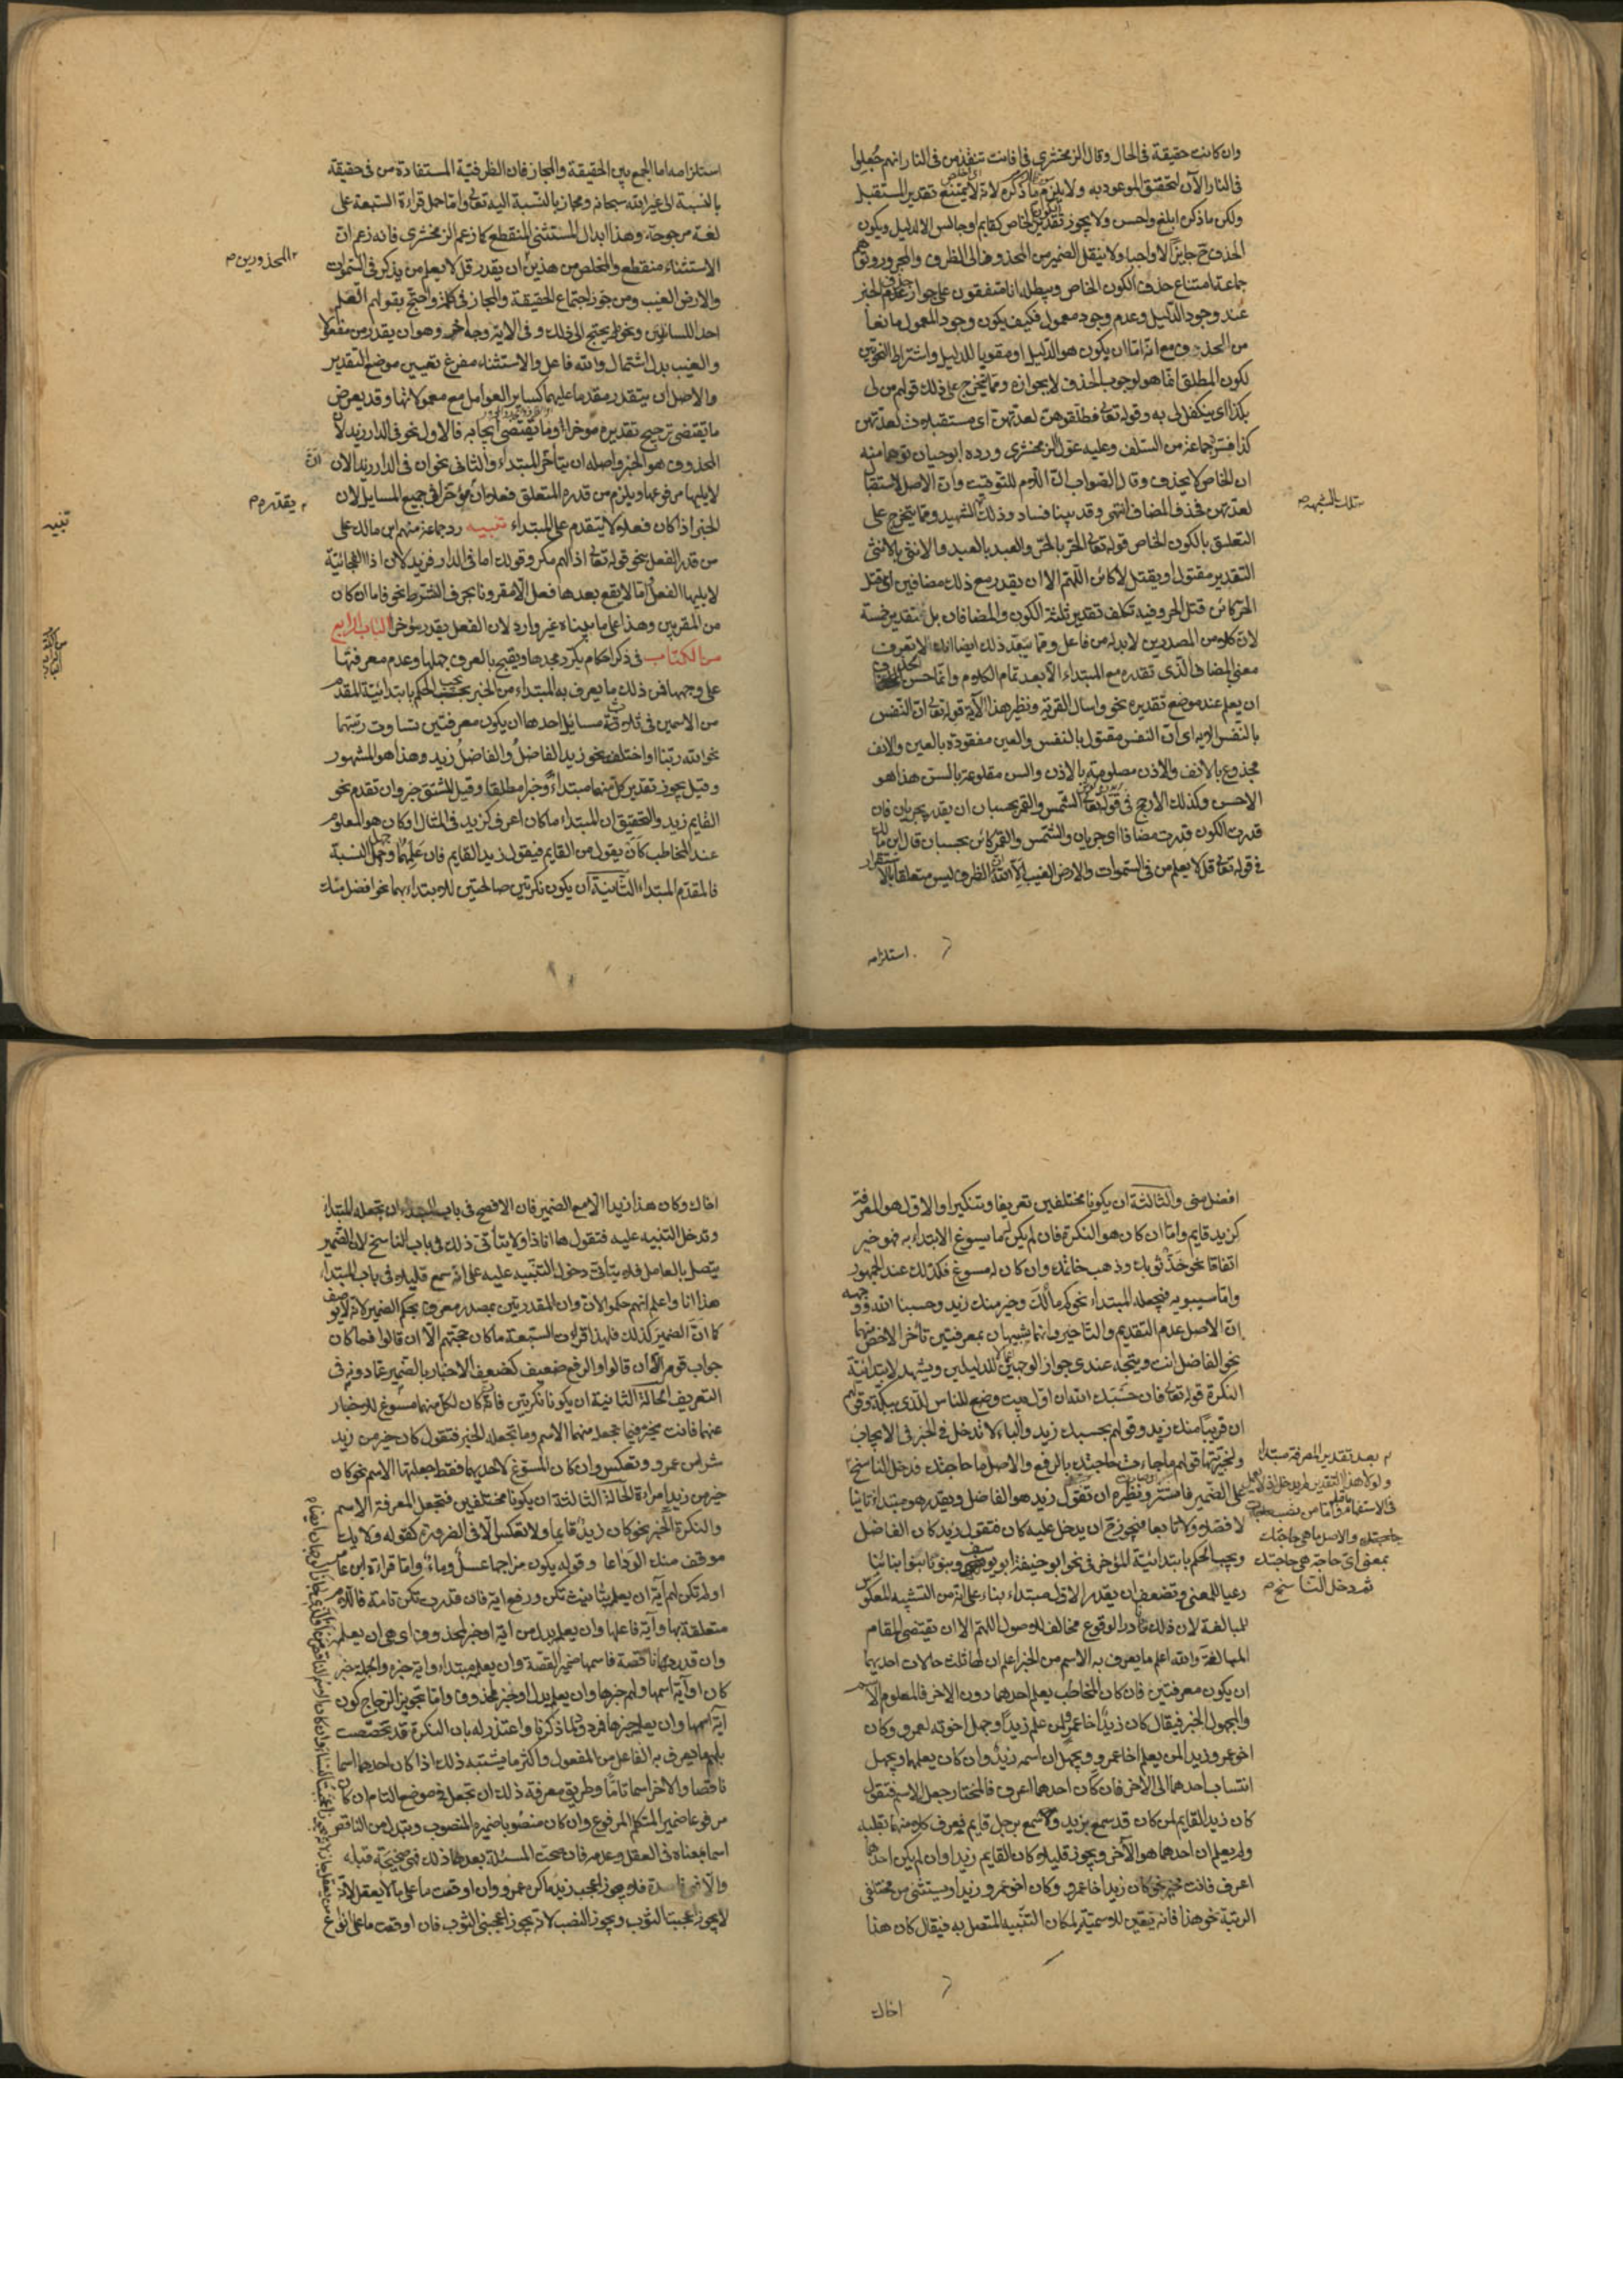 وان كانت حقيقة فى الحال وقال الزمخشرى فى افانت تنقذ من فى النار انهم جعلوا
فى النار الآن لتحقق الموعود به ولا يلزم ما ذكره لانه لا يمتنع تقدير المستقبل
ولكن ما ذكره ابلغ واحسن ولا يجوز تقدير الكون الخاص كقايم وجالس الا لدليل ويكون
الحذف ح جايزا لا واجبا ولا ينتقل الضمير من المحذوف الى الظرف والمجرور وتوهم
جماعة امتناع حذف الكون الخاص ويبطله انا متفقون على جواز حذف الخبر
عند وجود الدليل وعدم وجود معمول فكيف يكون وجود المعمول مانعا
من الحذف مع انه اما ان يكون هو الدليل او مقويا للدليل واشتراط النحويين
لكون المطلق انما هو لوجوب الحذف لا لجوازه ومما يتخرج على ذلك قولهم من لى
بكذا اى يتكفل لى به وقوله تعالى فطلقوهن لعدتهن اى مستقبلات لعدتهن
كذا فسره جماعة من السلف وعليه عول الزمخشرى ورده ابو حيان توهما منه
ان الخاص لا يحذف وقال الصواب ان اللام للتوقيت وان الاصل لاستقبال
لعدتهن فحذف المضاف انتهى وقد بينا فساد تلك الشبهة ومما يتخرج على
التعلق بالكون الخاص قوله تعالى الحر بالحر والعبد بالعبد والانثى بالانثى
التقدير مقتول او يقتل لا كائن اللهم الا ان يقدر مع ذلك مضافين اى قتل
الحر كائن بقتل الحر وفيه تكلف تقدير ثلثة الكون والمضافان بل تقدير خمسة
لان كلا من المصدرين لا بد له من فاعل ومما يبعد ذلك ايضا انك لا تعرف
معنى المضاف الذى تقدره مع المبتداء الا بعد تمام الكلام وانما حسن الحذف
ان يعلم عند موضع تقديره نحو واسال القرية ونظير هذا الآية قوله تعالى ان النفس
بالنفس الاية اى ان النفس مقتول بالنفس والعين مفقودة بالعين والانف
مجذوع بالانف والاذن مصلومة بالاذن والسن مقلوعة بالسن هذا هو
الاحسن وكذلك الارجح فى قوله تعالى الشمس والقمر بحسبان ان يقدر يجريان فان
قدرت الكون قدرت مضافا اى جريان الشمس والقمر كائن بحسبان وقال ابن مالك
فى قوله تعالى قل لا يعلم من فى السموات والارض الغيب الا الله ان الظرف ليس متعلقا بالاستقرار
استلزامه
تلك الشبهة م
استلزامه اما الجمع بين الحقيقة والمجاز فان الظرفية المستفادة من فى حقيقة
بالنسبة الى غير الله سبحانه ومجاز بالنسبة اليه تعالى واما حمل قراءة السبعة على
لغة مرجوحة وهذا ابدال المستثنى المنقطع كما زعم الزمخشرى فانه زعم ان
الاستثناء منقطع والمخلص من هذين ان يقدر قل لا يعلم من يذكر فى السموات
والارض الغيب ومن جوز اجتماع الحقيقة والمجاز فى كلمة واحتج بقولهم القلم
احد اللسانين ونحوه لم يحتج الى ذلك وفى الاية وجه اخر وهو ان يقدر من مفعولا
والغيب بدل اشتمال والله فاعل والاستثناء مفرغ تعيين موضع التقدير
والاصل ان يتقدر مقدما عليهما كساير العوامل مع معمولاتها وقد يعرض
ما يقتضى ترجيح تقديره مؤخرا وما يقتضى ايجابه فالاول نحو فى الدار زيد لان
المحذوف هو الخبر واصله ان يتأخر عن المبتداء والثانى نحو ان فى الدار زيدا لان
لا يليها مرفوعها ويلزم من قدر المتعلق فعلا ان مؤخرا فى جميع المسايل لان
الخبر اذا كان فعلا لا يتقدم على المبتداء تنبيه رد جماعة منهم ابن مالك على
من قدر الفعل بنحو قوله تعالى اذا لهم مكر وقولك اما فى الدار فزيد لان اذا الفجائية
لا يليها الفعل واما لا يقع بعدها فعل الا مقرونا بحرف الشرط نحو فاما ان كان
من المقربين وهذا على ما بيناه غير وارد لان الفعل يقدر مؤخرا الباب الرابع
من الكتاب فى ذكر احكام يكثر دورها ويقبح بالمعرب جهلها وعدم معرفتها
على وجهها فمن ذلك ما يعرف به المبتداء من الخبر يجب الحكم بابتدائية المقدم
من الاسمين فى ثلاث مسايل احدها ان يكون معرفتين تساوت رتبتهما
نحو الله ربنا او اختلفت نحو زيد الفاضل والفاضل زيد وهذا هو المشهور
وقيل يجوز تقدير كل منهما مبتداء وخبرا مطلقا وقيل المشتق خبر وان تقدم نحو
القايم زيد والتحقيق ان المبتداء ما كان اعرف كزيد فى المثال او كان هو المعلوم
عند المخاطب كأن يقول من القايم فيقول زيد القايم فان علمهما وجهل النسبة
فالمقدم المبتداء الثانية ان يكون نكرتين صالحتين للابتداء بهما نحو افضل منك
المحذورين م
ان
يقدره م
تنبيه
افضل منى والثالثة ان يكونا مختلفين تعريفا وتنكيرا والاول هو المعرفة
كزيد قايم واما ان كان هو النكرة فان لم يكن لها ما يسوغ الابتداء به فهو خبر
اتفاقا نحو خز ثوبك وذهب خاتمك وان كان له مسوغ فكذلك عند الجمهور
واما سيبويه فيجعله المبتداء نحو كم مالك وخير منك زيد وحسبنا الله ووجهه
ان الاصل عدم التقديم والتاخير وانهما شبيهان بمعرفتين تأخر الاخص منهما
نحو الفاضل انت ويتجه عندى جواز الوجهين اعمالا للدليلين ويشهد لابتدائية
النكرة قوله تعالى فان حسبك الله ان اول بيت وضع للناس للذى ببكة وقولهم
ان قريبا منك زيد وقولهم بحسبك زيد والباء لا تدخل فى الخبر فى الايجاب
ولخبريتها قولهم ما جاءت حاجتك بالرفع والاصل ما حاجتك فدخل الناسخ
على الضمير فاستتر ونظيره ان تقول زيد هو الفاضل ويقدر هو مبتداء ثانيا
لا فصلا ولا تابعا فيجوز ح ان يدخل عليه كان فتقول زيد كان الفاضل
ويجب الحكم بابتدائية المؤخر فى نحو ابو حنيفة ابو يوسف وبنونا بنو ابنائنا
رعيا للمعنى ويضعف ان يقدر الاول مبتداء بناء على انه من التشبيه المعكوس
للمبالغة لان ذلك نادر الوقوع مخالف للاصول اللهم الا ان يقتضى المقام
المبالغة والله اعلم ما يعرف به الاسم من الخبر اعلم ان لهما ثلث حالات احديها
ان يكون معرفتين فان كان المخاطب يعلم احدهما دون الاخر فالمعلوم الاسم
والمجهول الخبر فيقال كان زيد اخا عمرو لمن علم زيدا وجهل اخوته لعمرو وكان
اخو عمرو زيدا لمن يعلم اخا عمرو ويجهل ان اسمه زيد وان كان يعلمهما ويجهل
انتساب احدهما الى الاخر فان كان احدهما اعرف فالمختار جعله الاسم فتقول
كان زيد القايم لمن كان قد سمع بزيد وسمع برجل قايم فعرف كلا منهما بقلبه
ولم يعلم ان احدهما هو الآخر ويجوز قليلا كان القايم زيدا وان لم يكن احدهما
اعرف فانت مخير نحو كان زيد اخا عمرو وكان اخو عمرو زيدا ويستثنى من مختلفى
الرتبة نحو هذا فانه يتعين للاسمية لمكان التنبيه المتصل به فيقال كان هذا
اخاك
بعد تقدير المعرفة مبتداء
ولولا هذا التقدير لم يدخل اذ لا يعمل
فى الاستفهام ما قبله واما من نصب
حاجتك والاصل ما هى حاجتك
بمعنى اى حاجة هى حاجتك
ثم دخل الناسخ م
اخاك وكان هذا زيدا الا مع الضمير فان الافصح فى باب المبتداء ان تجعله المبتداء
وتدخل التنبيه عليه فتقول ها انا ذا ولا يتأتى ذلك فى باب الناسخ لان الضمير
يتصل بالعامل فلا يتأتى دخول التنبيه عليه على انه سمع قليلا فى باب المبتداء
هذا انا واعلم انهم حكموا لان وان المقدرتين بمصدر معرف بحكم الضمير لانه لا يوصف
كما ان الضمير كذلك فلهذا قراءت السبعة ما كان حجتهم الا ان قالوا فما كان
جواب قومه الا ان قالوا والرفع ضعيف كضعف الاخبار بالضمير عما دونه فى
التعريف الحالة الثانية ان يكونا نكرتين فان كان لكل منهما مسوغ للاخبار
عنهما فانت مخير فيما تجعله منهما الاسم وما تجعله الخبر فتقول كان خير من زيد
شرا من عمرو وتعكس وان كان المسوغ لاحديهما فقط جعلتها الاسم نحو كان
خير من زيد امراءة الحالة الثالثة ان يكونا مختلفين فتجعل المعرفة الاسم
والنكرة الخبر نحو كان زيد قايما ولا تعكس الا فى الضرورة كقوله ولا يك
موقف منك الوداعا وقوله يكون مزاجها عسل وماء واما قراءة ابن عامر
اولم تكن لهم آية ان يعلمه بتانيث تكن ورفع اية فان قدرت تكن تامة فاللام
متعلقة بها وآية فاعلها وان يعلمه بدل من اية او خبر لمحذوف اى هى ان يعلمه
وان قدرتها ناقصة فاسمها ضمير القصة وان يعلمه مبتداء واية خبره والجملة خبر
كان او آية اسمها ولهم خبرها وان يعلمه بدل او خبر لمحذوف واما تجويز الزجاج كون
آية اسمها وان يعلمه خبرها فردوه لما ذكرنا واعتذر له بان النكرة قد تخصصت
بلهم ما يعرف به الفاعل من المفعول واكثر ما يشتبه ذلك اذا كان احدهما اسما
ناقصا والاخر اسما تاما وطريق معرفة ذلك ان تجعل فى موضع التام ان كان
مرفوعا ضمير المتكلم المرفوع وان كان منصوبا ضميره المنصوب وتبدل من الناقص
اسما بمعناه فى العقل وعدمه فان صحت المسئلة بعد ذلك فهى صحيحة قبله
والا فهى فاسدة فلا يجوز اعجب زيد ما كره عمرو وان اوقعت ما على ما لا يعقل لانه
لا يجوز اعجبت الثوب ويجوز النصب لانه يجوز اعجبنى الثوب فان اوقعت ما على انواع